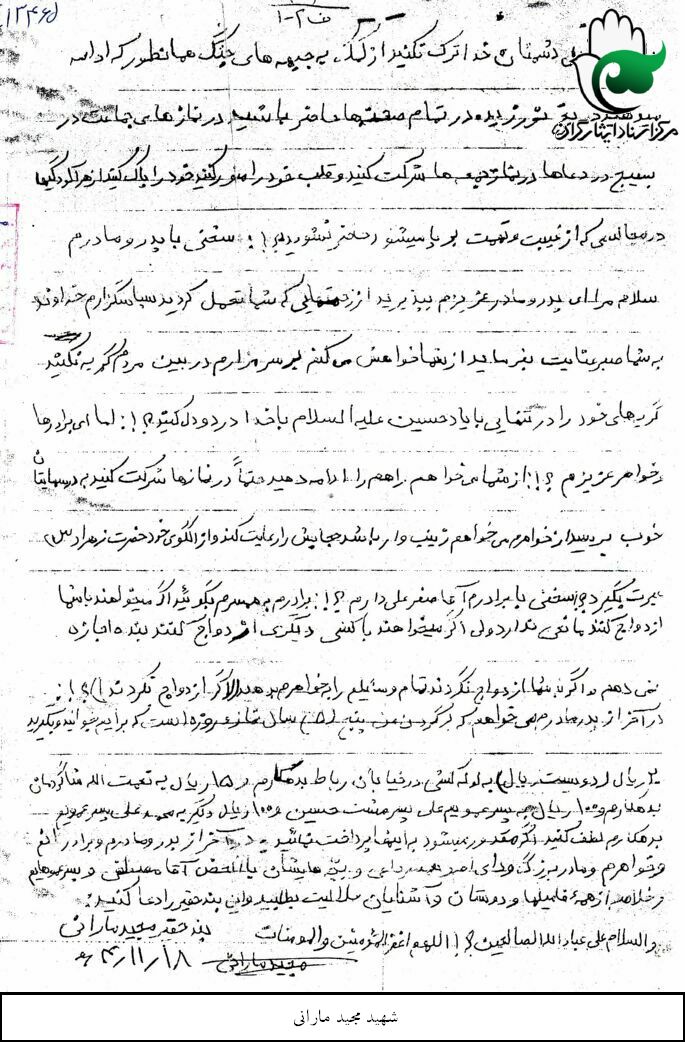 ف ۲-۱
دشمنان خدا ترک نکنید از کمک به جبهه های جنگ همانطور که ادامه
مرکز اسناد ایثارگران
در تمام صحنه ها حاضر باشید در نمازهای جماعت در
بسیج در دعاها در نماز جمعه ها شرکت کنید و قلب خود را منور کنید خود را پاک کنید از هر آلودگیها
در مجالسی که از غیبت و تهمت بر پا میشود حاضر نشوید؟!: سخنی با پدر و مادرم
سلام مرا ای پدر و مادر عزیزم بپذیرید از زحمتهایی که شما تحمل کردید سپاسگزارم خداوند
به شما صبر عنایت بفرماید از شما خواهش می کنم بر سر مزارم در بین مردم گریه نکنید
گریه های خود را در تنهایی با یاد حسین علیه السلام با خدا درد دل کنید؟!: اما ای برادرها
و خواهر عزیزم ؟!: از شما می خواهم راهم را ادامه دهید حتماً در نمازها شرکت کنید به درسهایتان
خوب برسید از خواهرم می خواهم زینب وار باشد حجابش را رعایت کند و از الگوی خود حضرت زهرا (س)
عبرت بگیرد سخنی با برادرم آقا صفر علی دارم ؟!: برادرم به همسرم بگوئید اگر میخواهند با شما
ازدواج کنند مانعی ندارد ولی اگر میخواهند با کسی دیگری ازدواج کنند بنده اجازه
نمی دهم و اگر با شما ازدواج نکردند تمام وسایلم را به خواهرم بدهد (اگر ازدواج نکردند) ؟!:
در آخر از پدر و مادرم می خواهم که بر گردن من پنج (۵) سال نماز و روزه است که برایم خوانده و بگیرید
ریال (دویست ریال) به لوله کشی در خیابان رباط بدهکارم و ریال به نعمت الله شاگردمان
بدهکارم و ۱۰۰ ریال به پسر عمویم علی پسر مشت حسین و ۱۰۰ ریال دیگر به محمد علی پسر عمویم
بدهکارم لطف کنید اگر مقدور میشود به اینها پرداخت نمائید در آخر از پدر و مادرم و برادرانم
و خواهرم و مادر بزرگ و دای و بچه هایشان بالاخص آقا مصطفی و پسر عموهایم
و خلاصه از همه فامیلها و دوستان و آشنایان حلالیت بطلبید و این بنده حقیر را دعا کنید:
والسلام علی عباد الله الصالحین ؟!: اللهم اغفر المؤمنین والمومنات بنده حقیر مجید مارانی
مجید مارانی ۱۸/۱۱/
شهید مجید مارانی